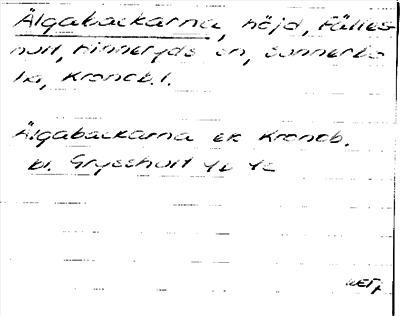 Älgabackarna, höjd, Fälles-
hult, Hinneryds sn, Sunnerbo
hd, Kronob. l.
Älgabackarna ek Kronob.
bl. Grysshult